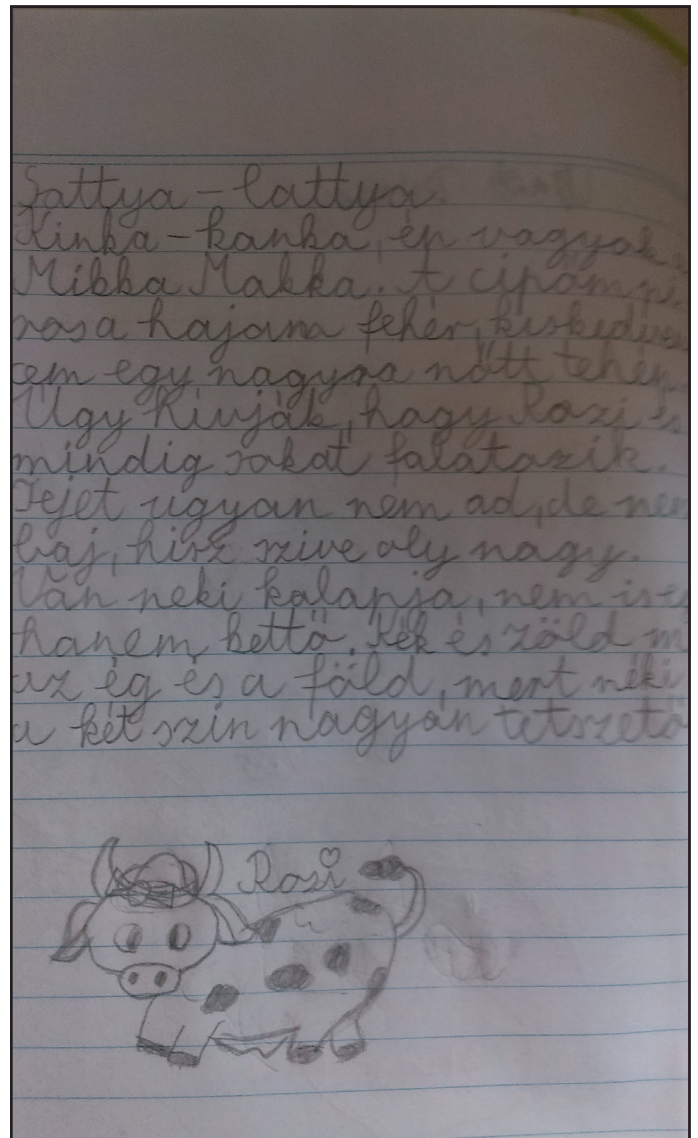 Sattya – lattya.
Kinka – kanka, én vagyok a
Mikka Makka. A cipőm pi
ros a hajam fehér, kiskedven
cem egy nagyra nőtt tehén.
Úgy hívják, hogy Rozi és
mindig sokat falatozik.
Tejet ugyan nem ad, de nem
baj, hisz szive oly nagy.
Van neki kalapja, nem is e
hanem kettő. Kék és zöld m
az ég és a föld, mert néki
a két szín nagyon tetszető
Rozi